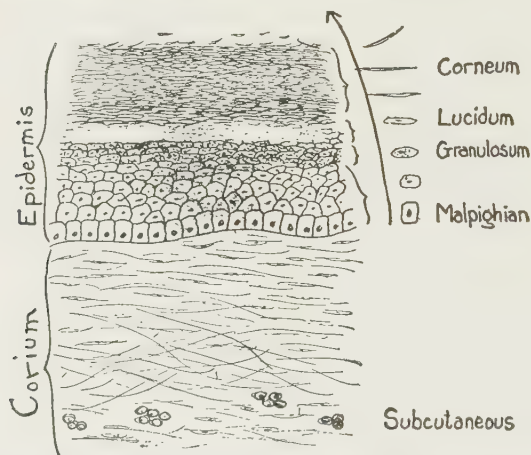 Epidermis
Corneum
Lucidum
Granulosum
Malpighian
Corium
Subcutaneous